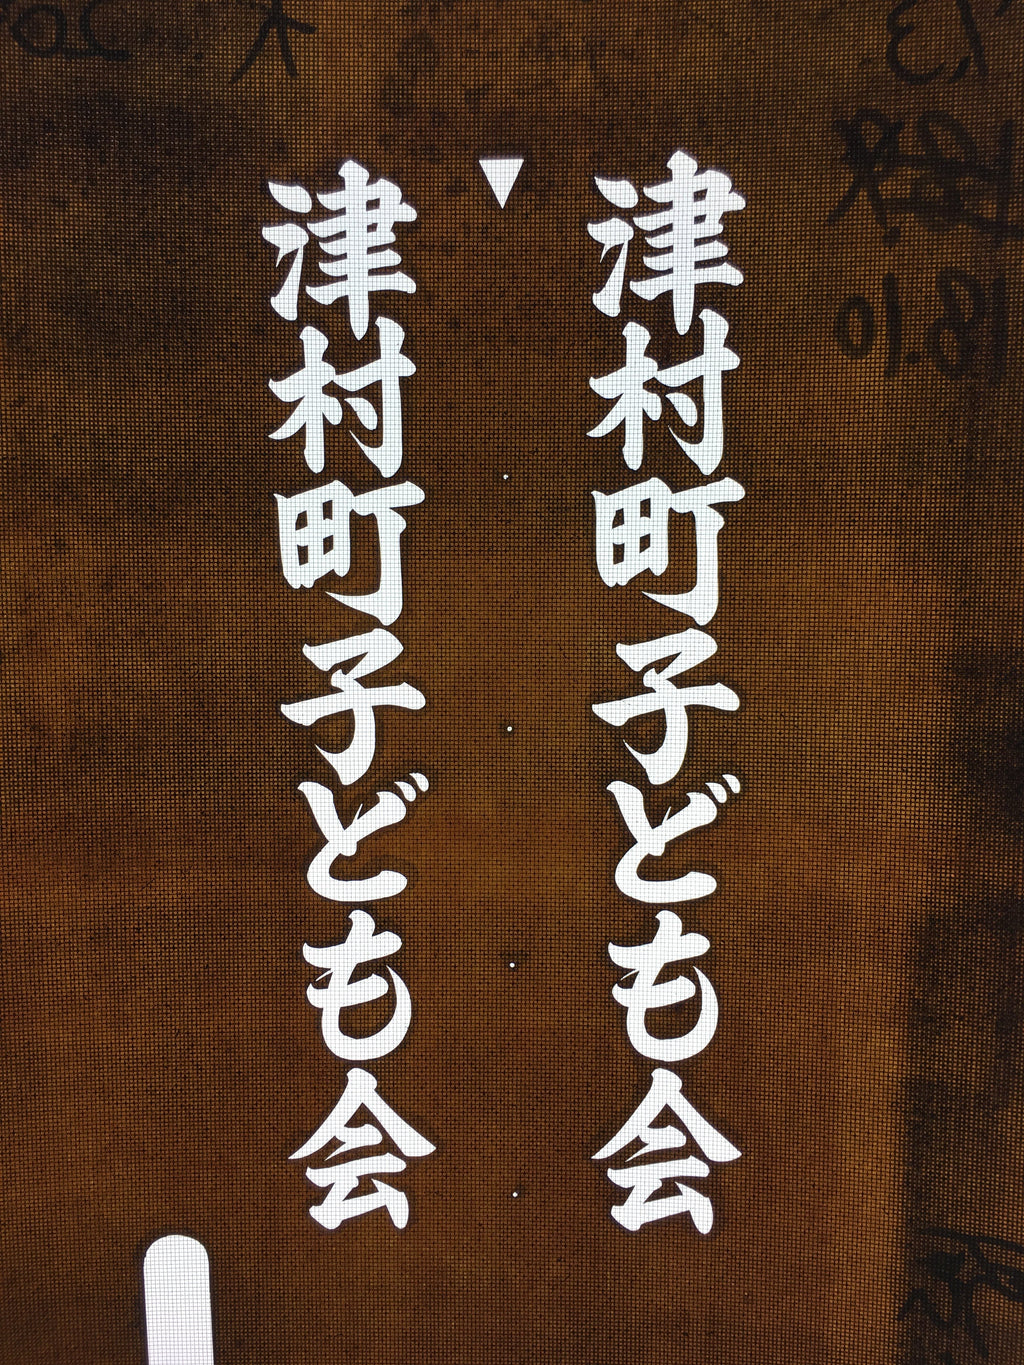 津村町子ども会
津村町子ども会